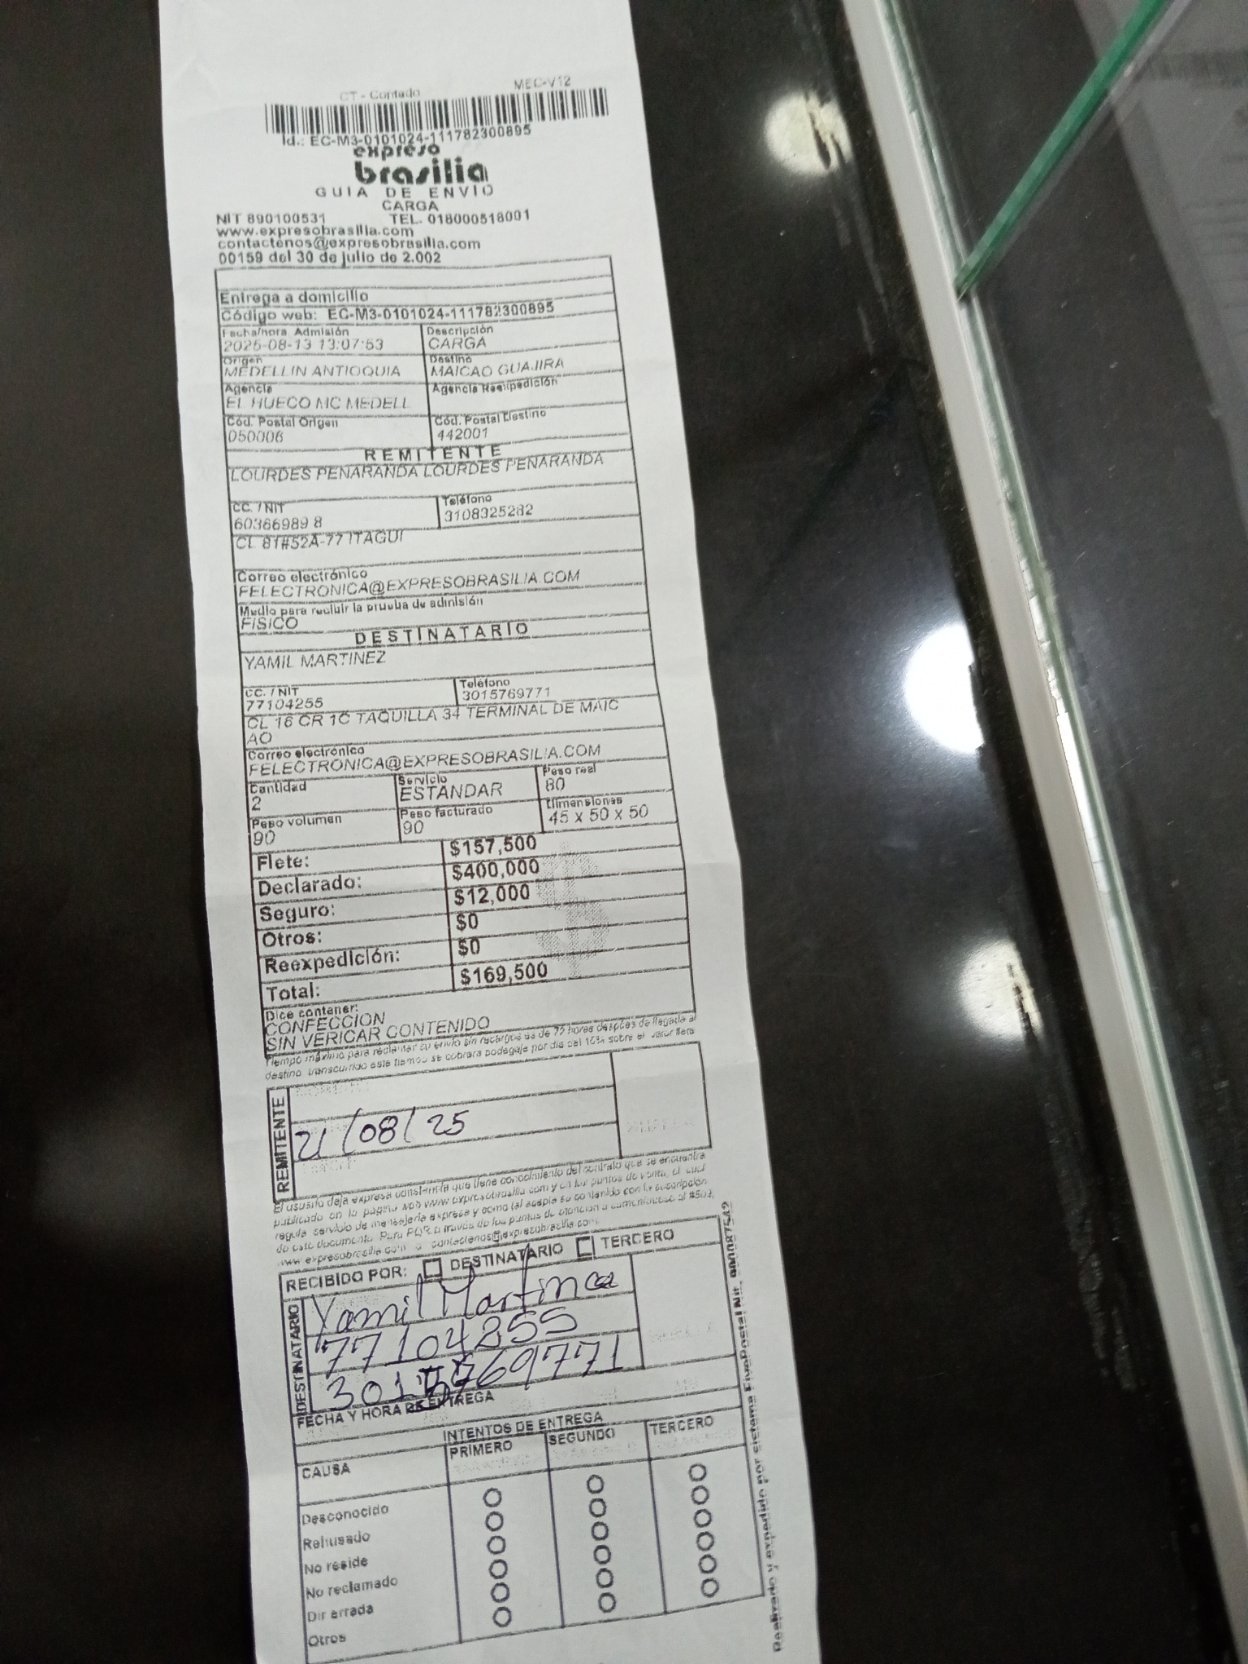 CT - Contado MEC-V12
Id.: EC-M3-0101024-111782300895
expreso
brasilia
GUIA DE ENVIO
CARGA
NIT 890100531 TEL. 018000518001
www.expresobrasilia.com
contactenos@expresobrasilia.com
00159 del 30 de julio de 2.002
Entrega a domicilio
Código web: EC-M3-0101024-111782300895
Fecha/hora Admisión Descripción
2025-08-13 13:07:53 CARGA
Origen Destino
MEDELLIN ANTIOQUIA MAICAO GUAJIRA
Agencia Agencia Reexpedición
EL HUECO MC MEDELL
Cód. Postal Origen Cód. Postal Destino
050006 442001
REMITENTE
LOURDES PENARANDA LOURDES PENARANDA
CC. / NIT Teléfono
60366989 8 3108325282
CL 81#52A-77 ITAGUI
Correo electrónico
FELECTRONICA@EXPRESOBRASILIA.COM
Medio para recibir la prueba de admisión
FISICO
DESTINATARIO
YAMIL MARTINEZ
CC. / NIT Teléfono
77104255 3015769771
CL 16 CR 1C TAQUILLA 34 TERMINAL DE MAIC
AO
Correo electrónico
FELECTRONICA@EXPRESOBRASILIA.COM
Cantidad Servicio Peso real
2 ESTANDAR 80
Peso volumen Peso facturado Dimensiones
90 90 45 x 50 x 50
Flete: $157,500
Declarado: $400,000
Seguro: $12,000
Otros: $0
Reexpedición: $0
Total: $169,500
Dice contener:
CONFECCION
SIN VERICAR CONTENIDO
Tiempo máximo para reclamar su envío sin recargos es de 72 horas después de llegada al
destino, transcurrido este tiempo se cobrara bodegaje por dia del 10% sobre el valor flete
REMITENTE
21/08/25
El usuario deja expresa constancia que tiene conocimiento del contrato que se encuentra
publicado en la pagina web www.expresobrasilia.com y en los puntos de venta, el cual
regula servicio de mensajería expresa y como tal acepta su contenido con la suscripción
de este documento. Para PQR a través de los puntos de atención o
www.expresobrasilia.com o contactenos@expresobrasilia.com
RECIBIDO POR: DESTINATARIO TERCERO
DESTINATARIO
Yamil Martinez
77104255
3015769771
FECHA Y HORA DE ENTREGA
INTENTOS DE ENTREGA
CAUSA PRIMERO SEGUNDO TERCERO
Desconocido
Rehusado
No reside
No reclamado
Dir errada
Otros
Realizado y expedido por sistema FivePostal Nit.